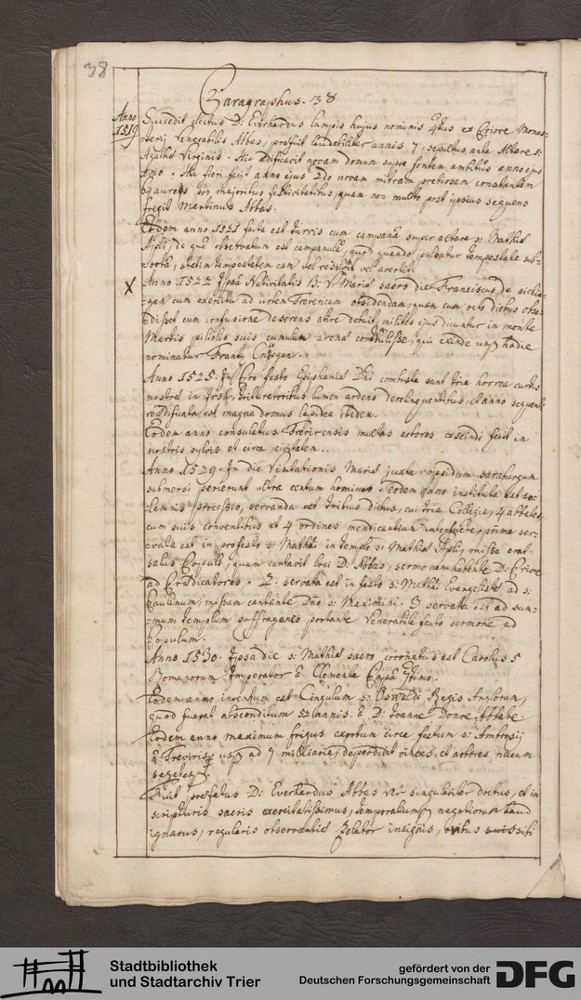 38
Paragraphus. 38
Anno
1519
Successit electus D: Everhardus hujus nominis ex Priore Monas-
terij Venerabilis Abbas, praefuit laudabiliter annis 7, sepultus ante Altare S:
Agathae Virginis. Hic aedificavit novam domum supra fontem ambitus anno ejus
2do. Hic fieri fecit anno ejus 2do novam mitram pretiosam constantem
aureos pro majoribus festivitatibus, quam non multo post ipsius sequens
fregit Martinus Abbas.
Eodem anno 1521 facta est turris cum campana super altare S: Mathiae
Apli, de qua observatum est campanula, quod quando pulsatur tempestate sub-
orta, statim tempestatem eam vel vel avertit.
X
Anno 1522 Ipsa Nativitatis B: V: Mariae sacro die Franciscus de Sickin-
gen cum exercitu ad urbem Trevericam obsidendam, quam cum octo diebus obse-
disset cum confusione deserens abire debuit, milites ejus dicuntur in monte
Martis pileolis suis cumulum arenae comportulisse, qui exinde usq hodie
nominatur Frantz
Anno 1525 In festo Epiphaniae Dni combusta sunt tria horrea curtis
nostrae in trituratoribus lumen ardens derelinquentibus, et anno sequenti
reaedificata est magna domus lapidea ibidem.
Eodem anno consulatus Trevirensis multas arbores exscindi fecit in
nostris sylvis et circa
Anno 1529. In die Visitationis Mariae juxta oppidum Saraburgum
submersi perierunt ultra centum homines. Eodem anno instituta est so-
lemnis processio, servanda est tribus diebus, cui tria Collegia, 4 abbates
cum suis conventibus et 4 ordines mendicantium interfuere, prima ser-
vata est in profesto S: Mathiae in templo S: Mathiae Apli, missa erat
salus Populi, quam cantavit loci D: Abbas, sermonem habente D: Priore
ad Praedicatores. 2. servata est in festo S: Mathaei Evangelistae ad S:
Paulinum, missam cantante Dno S: Maximini. 3 servata est ad sum-
mum templum suffraganeo portante Venerabile facto sermone ad
Populum.
Anno 1530. Ipsa die S: Mathiae sacro coronatus est Carolus 5
Romanorum Imperator a Clemente Papa 7timo.
Eodem anno inventum est Cingulum S: Oswaldi Regis Anglorum,
quod fuerat absconditum 52 annis a D: Joanne Donre Abbate.
Eodem anno maximum frigus exortum circa festum S: Ambrosij
a Treviris usq ad 7 milliaria, deperdidit vites, et arbores nucum
segetesq
Fuit praefatus D: Everhardus Abbas vir singulariter doctus, et in
scripturis sacris exercitatissimus, temporaliumq negotiorum haud
ignarus, regularis observantiae Zelator insignis,
Stadtbibliothek
und Stadtarchiv Trier
gefördert von der
Deutschen Forschungsgemeinschaft
DFG